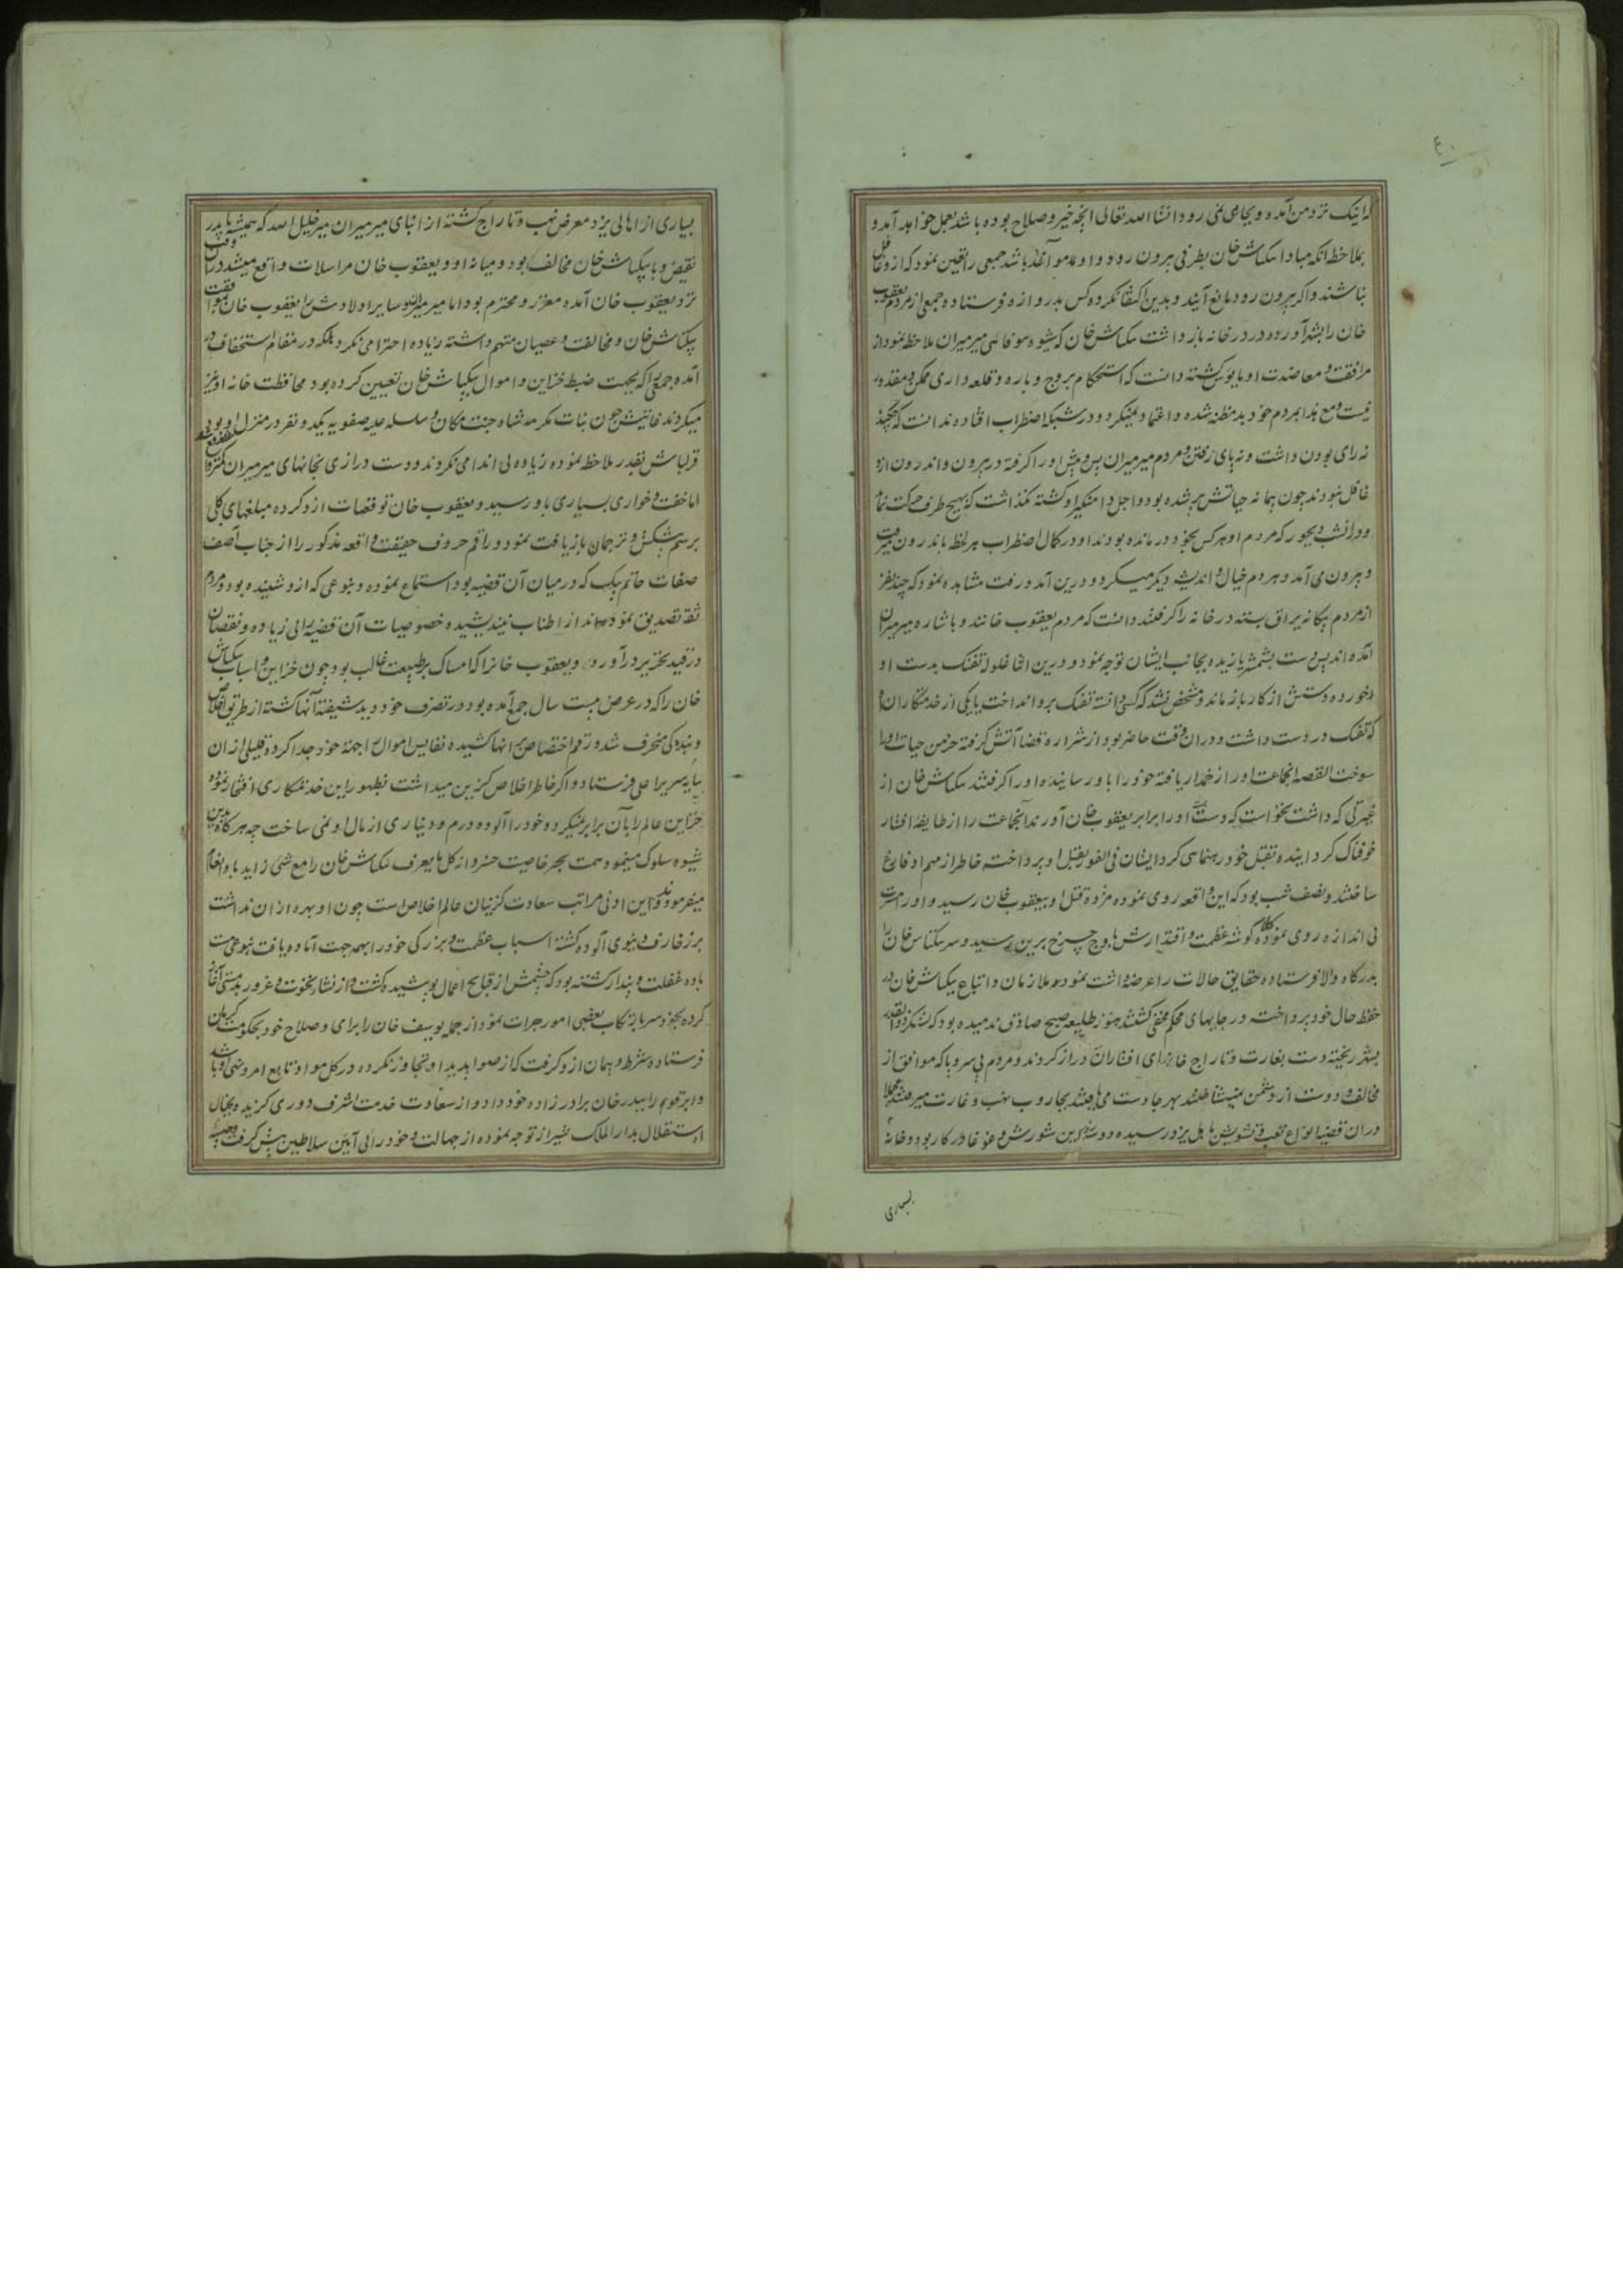 که اینک نزد من آمده و بجایی نمی رود انشا الله تعالی آنچه خیر و صلاح بوده باشد بعمل خواهد آمد و
بملاحظه آنکه مبادا بکتاش خان بطرفی بیرون رود و او مواخذ باشد جمعی را تعیین نمود که ازو غافل
نباشند و اگر بیرون رود مانع آیند و بدین اکتفا نکرده کس بدروازه فرستاده جمعی از مردم یعقوب
خان را بشهر آورده در در خانه بازداشت بکتاش خان که شیوه بیوفائی میرمیران ملاحظه نمود از
مرافقت و معاضدت او مایوس گشته دانست که استحکام بروج و باره و قلعه داری ممکن و مقدور
نیست و مع هذا بمردم خود بدمظنه شده و اعتماد نمیکرد و در شبکه اضطراب افتاده ندانست که چکند
نه رای بودن داشت و نه پای رفتن و مردم میرمیران پس و پیش او را گرفته در بیرون و اندرون ازو
غافل نبودند چون پیمانه حیاتش پر شده بود و اجل دامنگیر او گشته نگذاشت که بهیچ طرف حرکت نماید
و در آن شب دیجور که مردم او هر کس بخود درمانده بودند او در کمال اضطراب هر لحظه باندرون میرفت
و بیرون می آمد و هر دم خیال و اندیشه دیگر میکرد و درین آمد و رفت مشاهده نمود که چند نفر
از مردم بیگانه یراق بسته در خانه را گرفتند دانست که مردم یعقوب خانند و باشاره میرمیران
آمده اند پس دست بشمشیر یازیده بجانب ایشان توجه نمود و درین اثنا غلوله تفنگ بدست او
خورده دستش از کار بازماند و مشخص نشد که کسی دانسته تفنگ برو انداخت یا یکی از خدمتکاران او
که تفنگ در دست داشت و در آن وقت حاضر بود از شراره قضا آتش گرفته خرمن حیات او را
سوخت القصه آنجماعت او را زخمدار یافته خود را باو رسانیده او را گرفتند بکتاش خان از
غیرتی که داشت نخواست که دست بسته او را برابر یعقوب خان آورند آنجماعت را از طایفه افشار
خوفناک گردانیده بقتل خود رهنمائی کرد ایشان فی الفور بقتل او پرداخته خاطر از مهم او فارغ
ساختند و نصف شب بود که این واقعه روی نموده مژده قتل او بیعقوب خان رسید و او را مسرت
بی اندازه روی نموده کلاه گوشه عظمت و اقتدارش باوج چرخ برین رسید و سر بکتاش خان را
بدرگاه والا فرستاده حقایق حالات را عرضه داشت نمود و ملازمان و اتباع بیکتاش خان در
حفظ حال خود پرداخته در جایهای محکم مخفی گشتند هنوز طلیعه صبح صادق ندمیده بود که لشکر ذوالقدر
بشهر ریخته دست بغارت و تاراج خانهای افشاران دراز کردند و مردم بی سر و پا که موافق از
مخالف و دوست از دشمن نمیشناختند بهر جا دست می یافتند بجاروب نهب و غارت میرفتند مجملا
در آن قضیه انواع تعب و تشویش باهل یزد رسیده دو سه روز این شورش و غوغا در کار بود و خانه
بسیاری
بسیاری از اهالی یزد معرض نهب و تاراج گشته از ابنای میرمیران میر خلیل الله که همیشه با پدر
نقیض و با بیکتاش خان مخالف بود و میانه او و یعقوب خان مراسلات واقع میشد در آن وقت
نزد یعقوب خان آمده معزز و محترم بود اما میرمیران و سایر اولادش را یعقوب خان بموافقت
بیکتاش خان و مخالفت و عصیان متهم داشته زیاده احترامی نکرد بلکه در مقام استخفاف در
آمده جمعی را که بجهت ضبط خزاین و اموال بیکتاش خان تعیین کرده بود محافظت خانه او نیز
میکردند غایتش چون بنات مکرمه شاه جنت مکان و سلسله علیه صفویه یکدو نفر در منزل او بودند طبقه
قزلباش بقدر ملاحظه نموده زیاده بی اندامی نکردند و دست درازی بخانهای میرمیران کمتر واقع شد
اما خفت و خواری بسیاری باو رسید و یعقوب خان توقعات ازو کرده مبلغهای کلی
برسم پیشکش و ترجمان بازیافت نمود و راقم حروف حقیقت واقعه مذکور را از جناب آصف
صفات حاتم بیک که در میان آن قضیه بود استماع نموده و بنوعی که ازو شنیده بود و مردم
ثقه تصدیق نموده اند از اطناب نیندیشیده خصوصیات آن قضیه را بی زیاده و نقصان
در قید تحریر درآورد و یعقوب خانرا که امساک بر طبیعت غالب بود چون خزاین و اسباب بیکتاش
خان را که در عرض بیست سال جمع آمده بود در تصرف خود دید شیفته آنها گشته از طریق اخلاص
و بندگی منحرف شده رقم اختصاص بر آنها کشیده نفایس اموال را جهة خود جدا کرده قلیلی از آن
بپایه سریر اعلی فرستاد و اگر خاطر اخلاص گزین میداشت بظهور این خدمتکاری افتخار نموده
خزاین عالم را بآن برابر نمیکرد و خود را آلوده درم و دیناری از مال او نمی ساخت چه هرگاه بدین
شیوه سلوک مینمود همت بحر خاصیت خسرو از کل ما یعرف بکتاش خان را مع شی زاید باو انعام
میفرمودند و این ادنی مراتب سعادت گزینان عالم اخلاص است چون او بهره از آن نداشت
بزخارف دنیوی آلوده گشته اسباب عظمت و بزرگی خود را بهمه جهت آماده یافت بنوعی مست
باده غفلت و پندار گشته بود که چشمش از قبایح اعمال پوشیده گشت و از نشاء نخوت و غرور بدمستی آغاز
کرده بخود سر بارتکاب بعضی امور جرات نمود از جمله یوسف خان را برای و صلاح خود بحکومت کرمان
فرستاده شرط و پیمان ازو گرفت که از صوابدید او تجاوز نکرده در کل مواد تابع امر و نهی او باشد
و ابرقوه را بیدر خان برادرزاده خود داد و از سعادت خدمت اشرف دوری گزیده و بخیال
استقلال بدار الملک شیراز توجه نموده از جهالت و خودرائی آیین سلاطین پیش گرفت